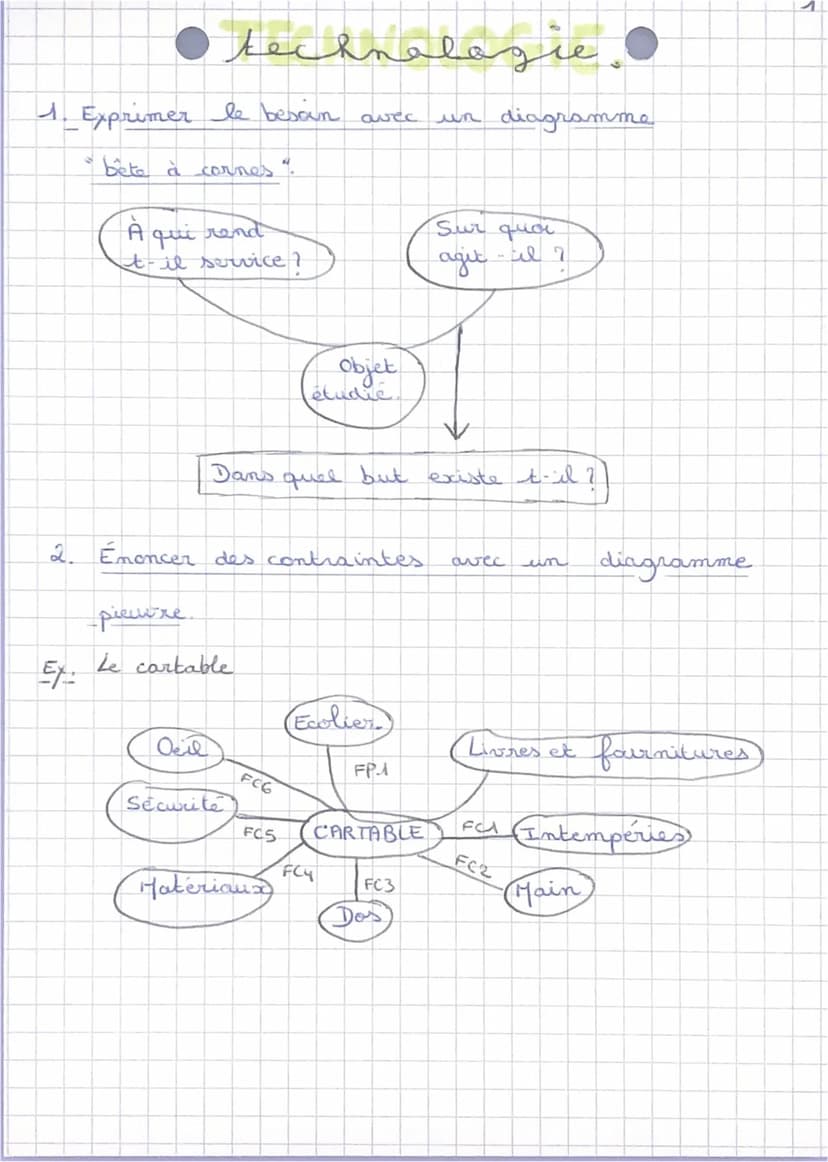 1
TECHNOLOGIE
technologie.
1. Exprimer le besoin avec un diagramme
"bête à cornes".
À qui rend
t-il service ?
Sur quoi
agit-il ?
Objet
étudié.
Dans quel but existe t-il ?
2. Énoncer des contraintes avec un diagramme
pieuvre.
Ex: Le cartable
Ecolier.
Oeil
Livres et fournitures
FP.1
FC6
Sécurité
FC5
CARTABLE
FC1
Intempéries
FC4
FC3
FC2
Matériaux
Main
Dos